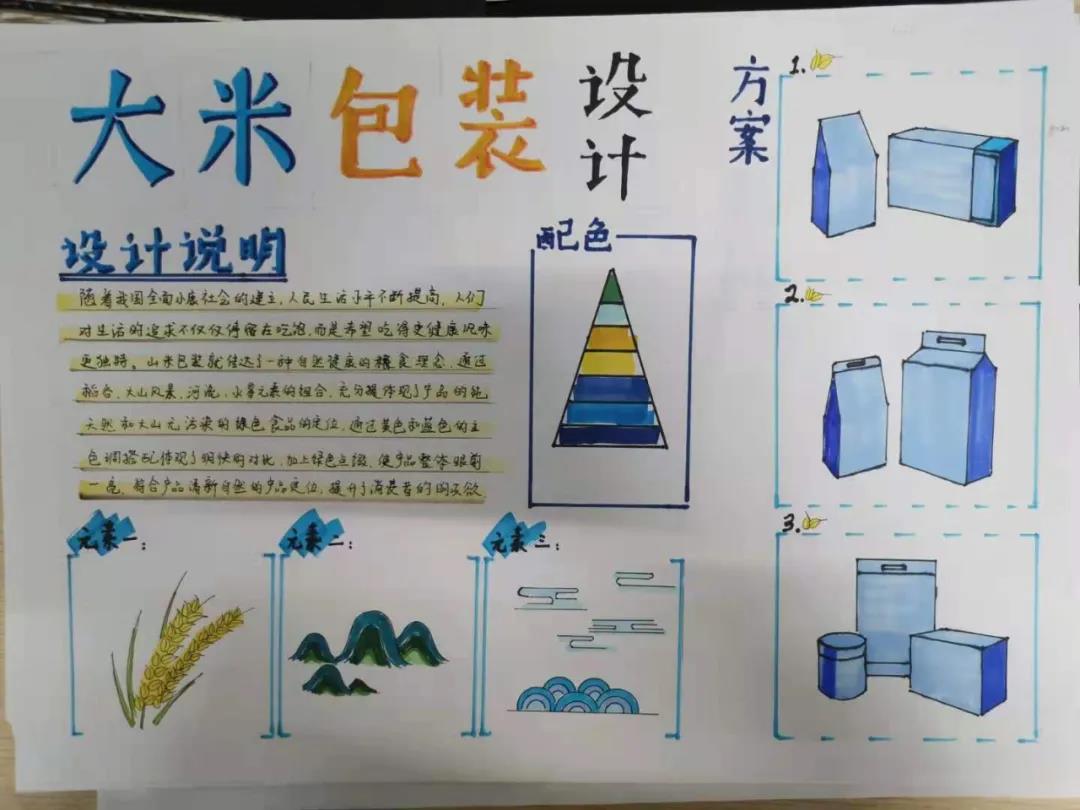 大米包装设计
设计说明
随着我国全面小康社会的建立，人民生活水平不断提高，人们
对生活的追求不仅仅停留在吃饱，而是希望吃得更健康风味
更独特。山米包装就传达了一种自然健康的粮食理念，通过
稻谷、大山风景、河流、水等元素的组合，充分提体现了产品的纯
天然和大山无污染的绿色食品的定位，通过黄色和蓝色的主
色调搭配体现了明快的对比，加上绿色点缀，使产品整体眼前
一亮，符合产品清新自然的产品定位，提升了消费者的购买欲
配色
元素一：
元素二：
元素三：
方案
1.
2.
3.